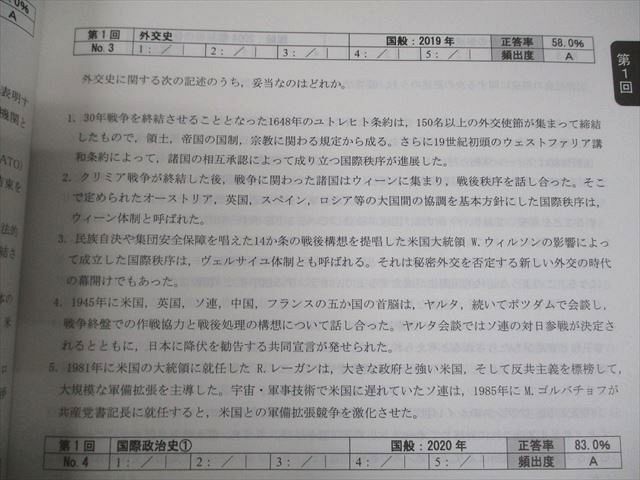 0%
A
第1回 外交史 国般:2019年 正答率 58.0%
No.3 1: / 2: / 3: / 4: / 5: / 頻出度 A
第1回
外交史に関する次の記述のうち,妥当なのはどれか。
1. 30年戦争を終結させることとなった1648年のユトレヒト条約は,150名以上の外交使節が集まって締結
したもので,領土,帝国の国制,宗教に関わる規定から成る。さらに19世紀初頭のウェストファリア講
和条約によって,諸国の相互承認によって成り立つ国際秩序が進展した。
2. クリミア戦争が終結した後,戦争に関わった諸国はウィーンに集まり,戦後秩序を話し合った。そこ
で定められたオーストリア,英国,スペイン,ロシア等の大国間の協調を基本方針にした国際秩序は,
ウィーン体制と呼ばれた。
3. 民族自決や集団安全保障を唱えた14か条の戦後構想を提唱した米国大統領 W.ウィルソンの影響によっ
て成立した国際秩序は,ヴェルサイユ体制とも呼ばれる。それは秘密外交を否定する新しい外交の時代
の幕開けでもあった。
4. 1945年に米国,英国,ソ連,中国,フランスの五か国の首脳は,ヤルタ,続いてポツダムで会談し,
戦争終盤での作戦協力と戦後処理の構想について話し合った。ヤルタ会談ではソ連の対日参戦が決定さ
れるとともに,日本に降伏を勧告する共同宣言が発せられた。
5. 1981年に米国の大統領に就任した R.レーガンは,大きな政府と強い米国,そして反共主義を標榜して,
大規模な軍備拡張を主導した。宇宙・軍事技術で米国に遅れていたソ連は,1985年に M.ゴルバチョフが
共産党書記長に就任すると,米国との軍備拡張競争を激化させた。
第1回 国際政治史① 国般:2020年 正答率 83.0%
No.4 1: / 2: / 3: / 4: / 5: / 頻出度 A
表明す
機関と
ATO)
吉束を
法的
結さ
体の
米
ロ